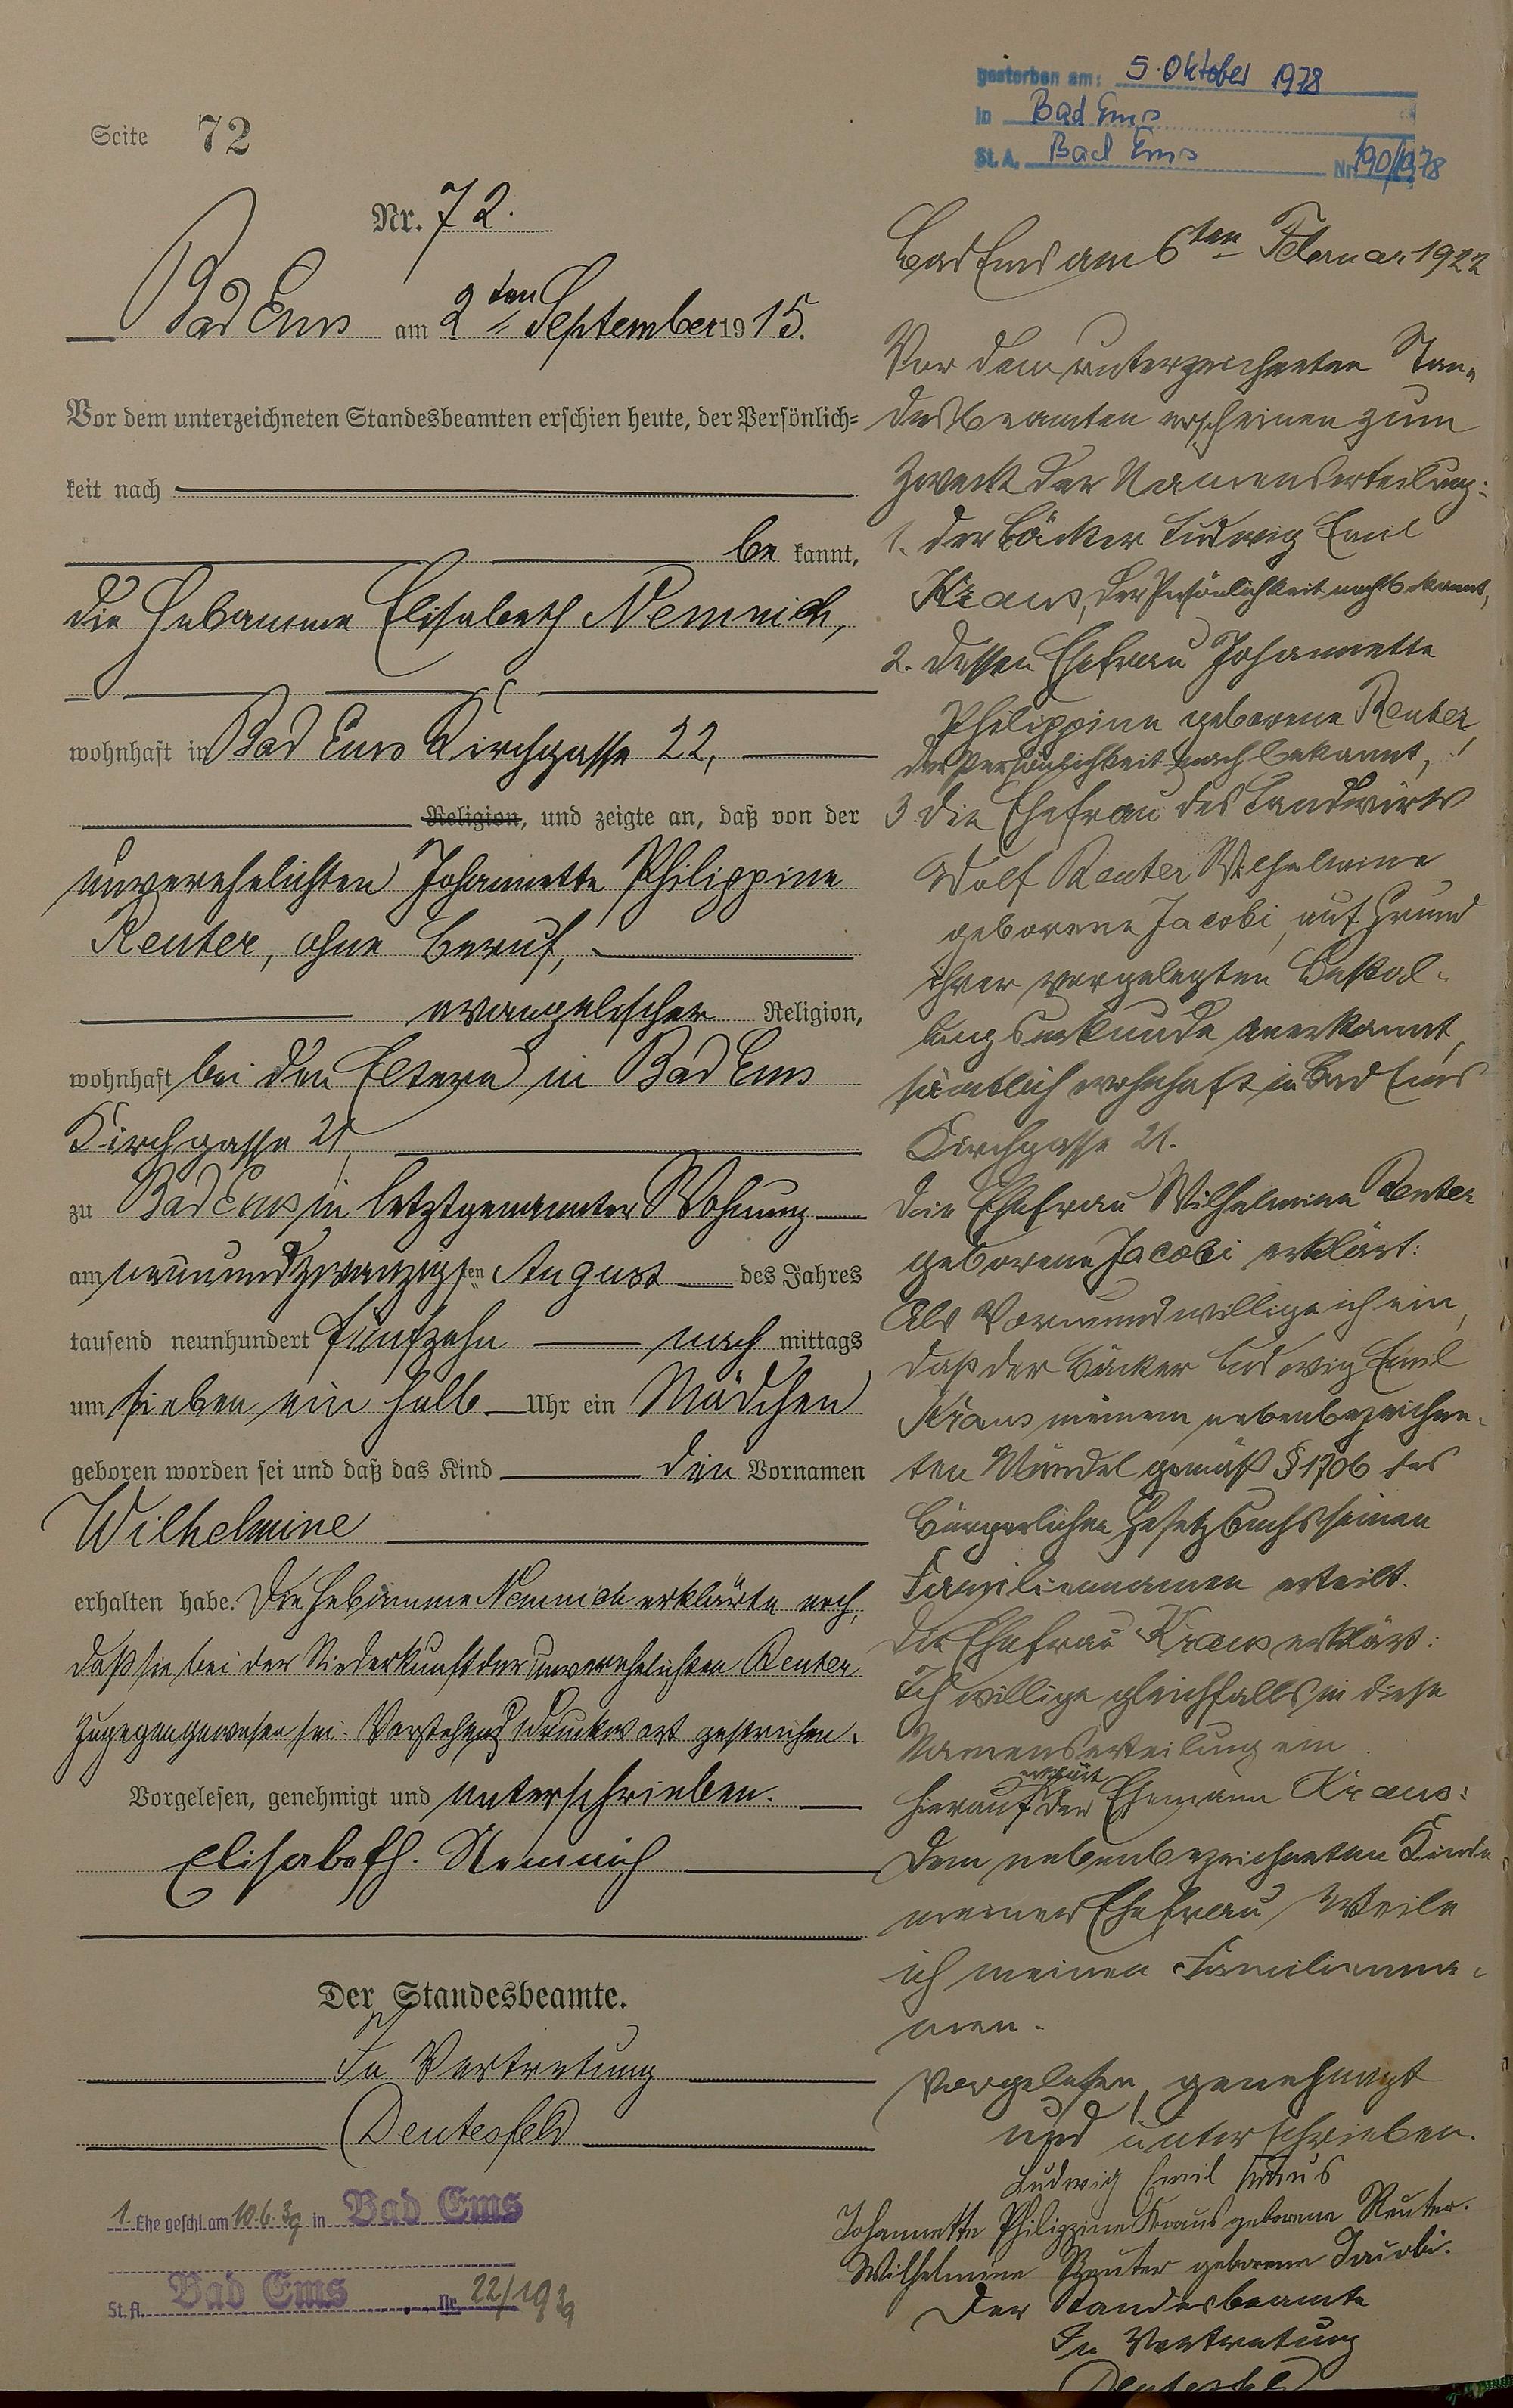 Seite 72
Nr. 72.
Bad Ems am 2ten September 1915.
Vor dem unterzeichneten Standesbeamten erschien heute, der Persönlich-
keit nach
be kannt,
die Hebamme Elisabeth Nemnich,
wohnhaft in Bad Ems Kirchgasse 22,
Religion, und zeigte an, daß von der
unverehelichten Johannette Philippine
Reuter, ohne Beruf,
evangelischer Religion,
wohnhaft bei den Eltern in Bad Ems
Kirchgasse 21,
zu Bad Ems in letztgenannter Wohnung
am neunundzwanzigsten August des Jahres
tausend neunhundert fünfzehn nach mittags
um sieben ein halb Uhr ein Mädchen
geboren worden sei und daß das Kind den Vornamen
Wilhelmine
erhalten habe. Die Hebamme Nemnich erklärte noch,
daß sie bei der Niederkunft der unverehelichten Reuter
zugegen gewesen sei. Vorstehend 1 Druckwort gestrichen.
Vorgelesen, genehmigt und unterschrieben.
Elisabeth. Nemnich
Der Standesbeamte.
In Vertretung
Deutesfeld
1. Ehe geschl. am 10.6.39 in Bad Ems
St. A. Bad Ems Nr. 22/1939
gestorben am: 5. Oktober 1978
in Bad Ems
St. A. Bad Ems Nr. 190/1978
Bad Ems am 6ten Februar 1922
Vor dem unterzeichneten Stan-
desbeamten erscheinen zum
Zweck der Namenserteilung:
1. der Bäcker Ludwig Emil
Kraus, der Persönlichkeit nach bekannt,
2. dessen Ehefrau Johannette
Philippine geborene Reuter,
der Persönlichkeit nach bekannt,
3. die Ehefrau des Landwirts
Adolf Reuter Wilhelmine
geborene Jacobi, auf Grund
ihrer vorgelegten Bestal-
lungsurkunde anerkannt,
sämtlich wohnhaft in Bad Ems
Kirchgasse 21.
Die Ehefrau Wilhelmine Reuter
geborene Jacobi erklärt:
Als Vormund willige ich ein,
daß der Bäcker Ludwig Emil
Kraus meinem nebenbezeichne-
ten Mündel gemäß § 1706 des
Bürgerlichen Gesetzbuchs seinen
Familiennamen erteilt.
Die Ehefrau Kraus erklärt:
Ich willige gleichfalls in diese
Namenserteilung ein.
Hierauf erklärt der Ehemann Kraus:
Dem nebenbezeichneten Kinde
meiner Ehefrau erteile
ich meinen Familienna-
men.
Vorgelesen, genehmigt
und unterschrieben.
Ludwig Emil Kraus
Johannette Philippine Kraus geborene Reuter.
Wilhelmine Reuter geborene Jacobi.
Der Standesbeamte
In Vertretung
Deutesfeld